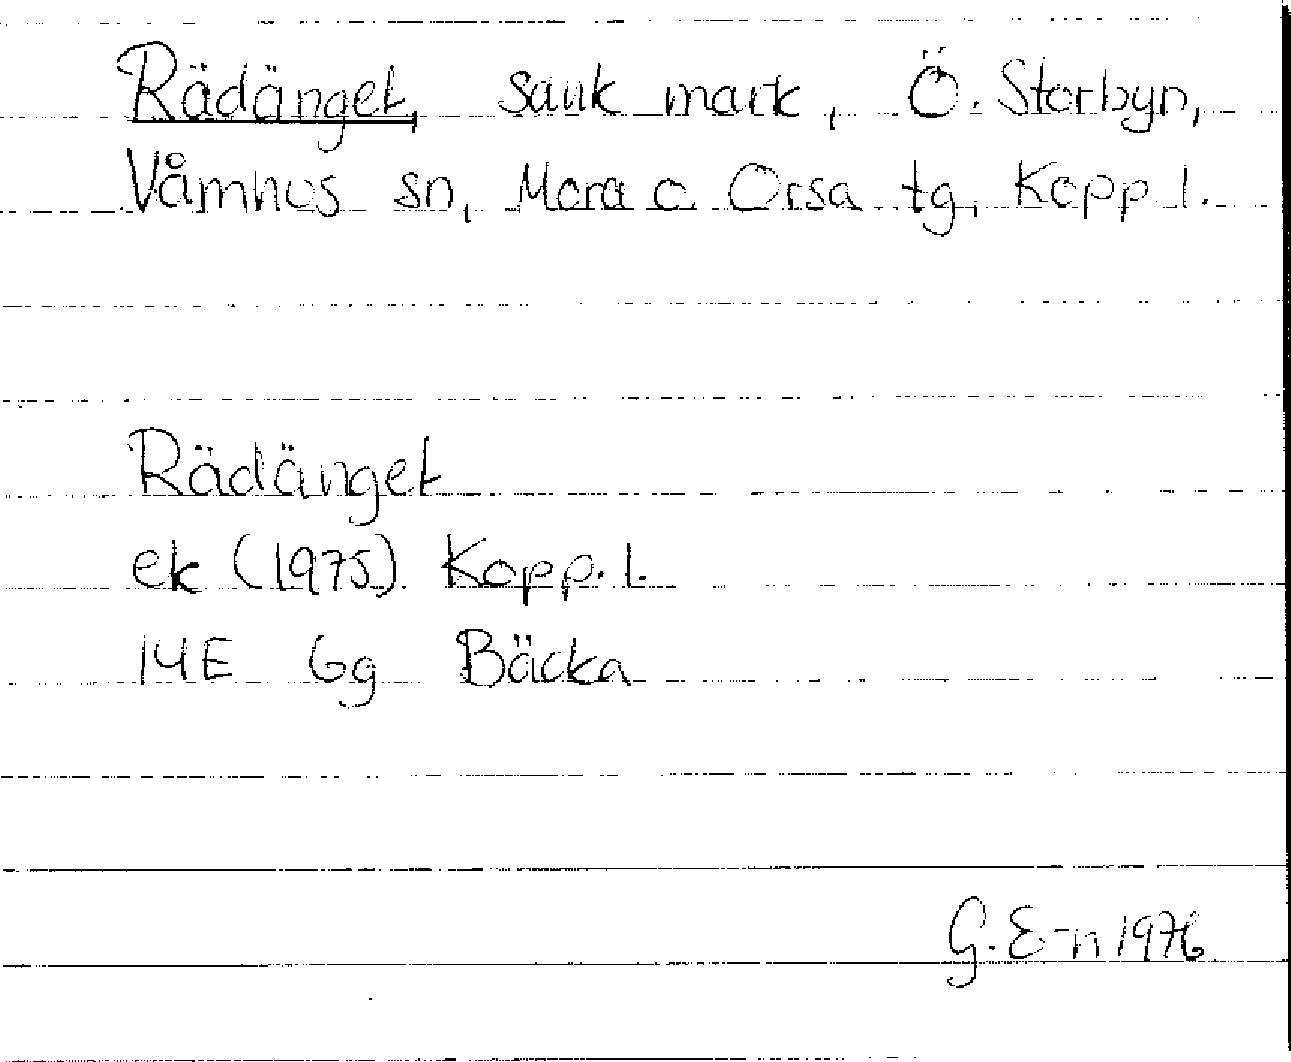 Rädänget, sank mark, Ö. Storbyn,
Våmhus sn, Mora o Orsa tg, Kopp l.
Rädänget
ek (1975) Kopp. l.
14E 6g Bäcka
G. E-n 1976